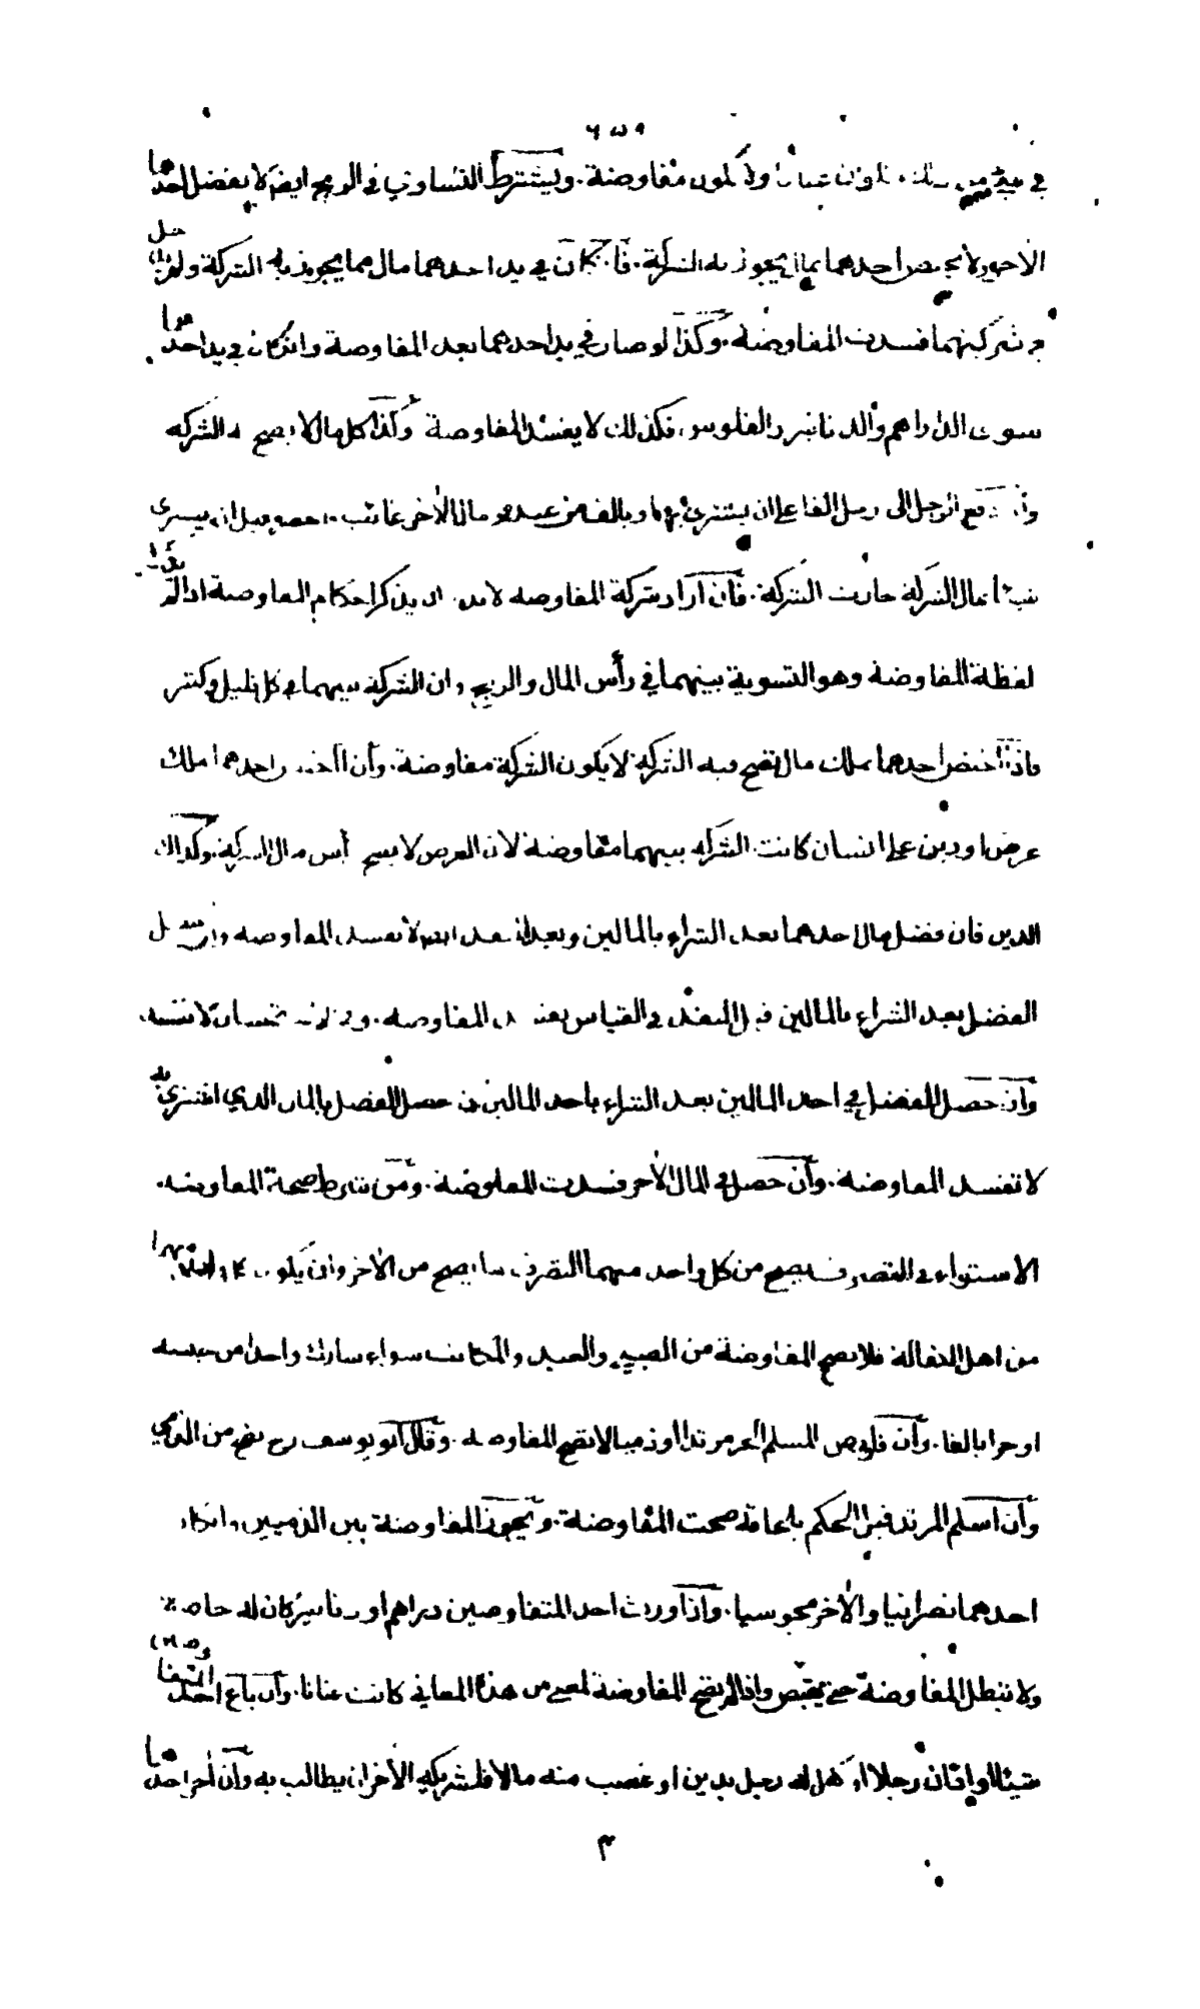 ولا يكون مفاوضة. ويشترط التساوي في الربح ايضا لا يفضل احدهما
الاخر ولا يختص احدهما بمال يجوز به الشركة. فان كان في يد احدهما مال مما يجوز به الشركة
شركتهما فسدت المفاوضة. وكذا لو صار في يد احدهما بعد المفاوضة وان كان في يد احدهما
سوى الدراهم والدنانير والفلوس فكذلك لا يفسد المفاوضة وكذا كل مال لا يصح به الشركة
الرجل الى رجل الفا على ان يشتري بها وبالف من عنده ومال الاخر غائب قبل ان يشتري
شيئا بمال الشركة جازت الشركة. فان اراد شركة المفاوضة لابد ان يذكر احكام المفاوضة اذا لم
لفظة المفاوضة وهو التسوية بينهما في رأس المال والربح وان الشركة بينهما في كل قليل وكثير
فاذا اختص احدهما بملك مال تصح فيه الشركة لا يكون الشركة مفاوضة. وان احدهما ملك
عرض او دين على انسان كانت الشركة بينهما مفاوضة لان العرض لا يصح رأس مال الشركة. وكذلك
الدين فان فضل مال احدهما بعد الشراء بالمالين وبعد النقد ايضا لا تفسد المفاوضة
الفضل بعد الشراء بالمالين قبل النقد في القياس المفاوضة. لا تفسد
وان حصل الفضل في احد المالين بعد الشراء باحد المالين حصل الفضل بالمال الذي اشترى به
لا تفسد المفاوضة. وان حصل في المال الاخر فسدت المفاوضة. ومن شرط صحة المفاوضة
الاستواء في التصرف فيصح من كل واحد منهما التصرف ما يصح من الاخر وان يكون
من اهل الكفالة فلا تصح المفاوضة من الصبي والعبد والمكاتب سواء شارك واحدا من جنسه
او حرا بالغا. وان فاوض المسلم الحر مرتدا او ذميا لا تصح المفاوضة. وقال ابو يوسف رح تصح من الذمي
وان اسلم المرتد قبل الحكم بلحاقه صحت المفاوضة. وتجوز المفاوضة بين الذميين وان كان
احدهما نصرانيا والاخر مجوسيا. واذا ورث احد المتفاوضين دراهم او دنانير كان له خاصة
ولا تبطل المفاوضة حتى يقبض واذا لم تصح المفاوضة لمعنى من هذه المعاني كانت عنانا. وان باع احد
شيئا او ادان رجلا او كفل له رجل بدين او غصب منه مالا فلشريكه الاخر ان يطالب به وان اجر احدهما